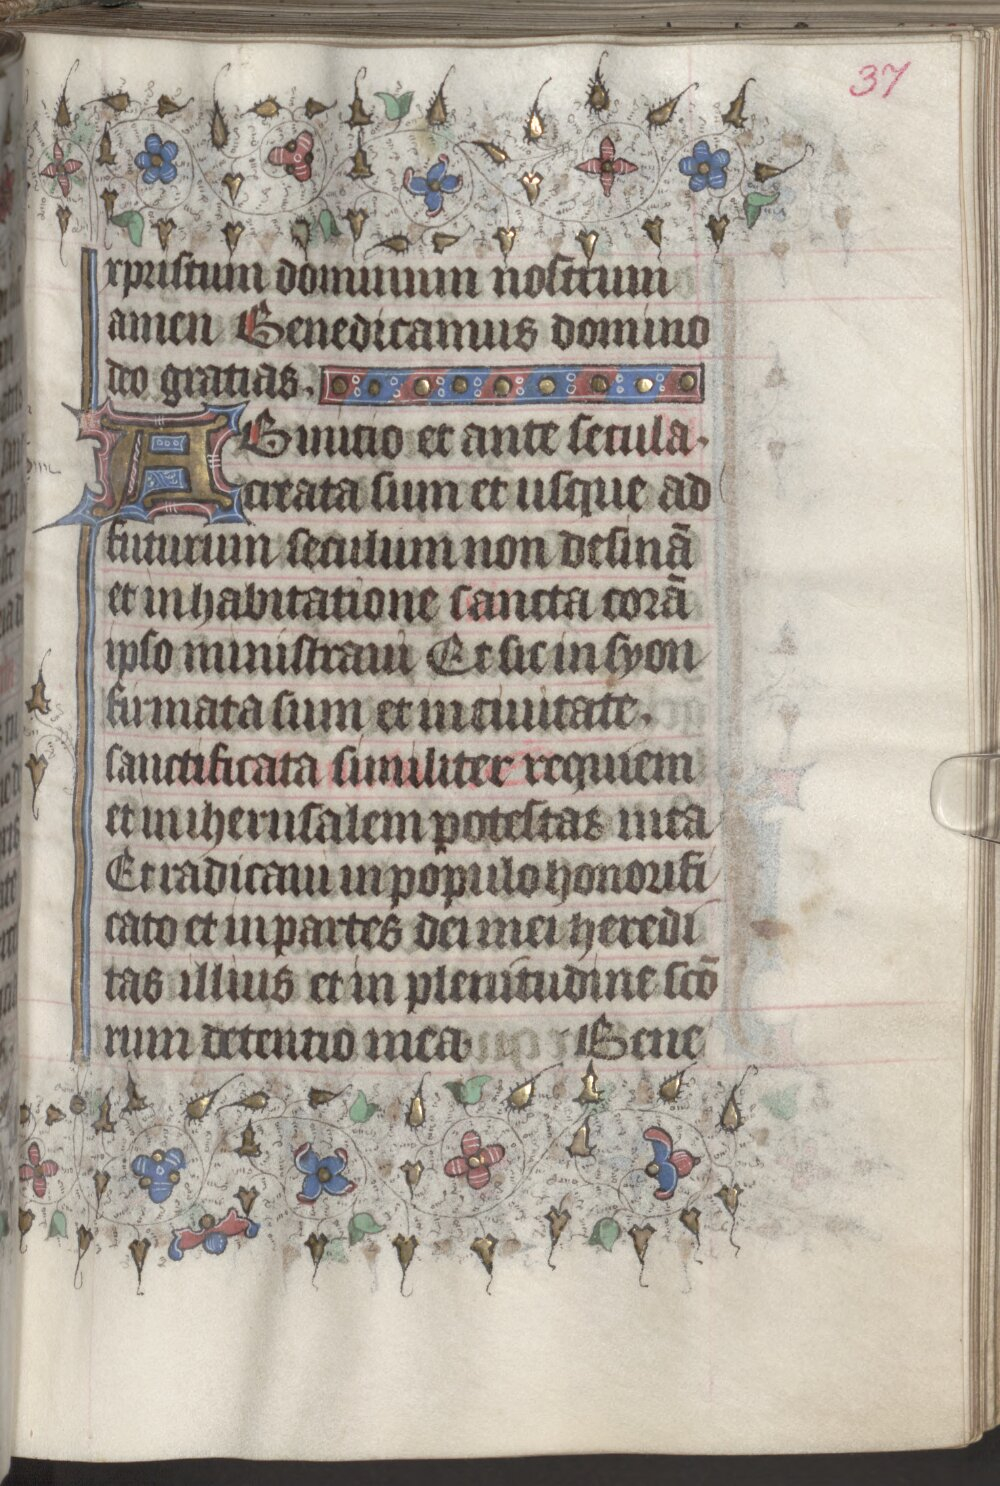 37
xpristum dominum nostrum
amen Benedicamus domino
deo gratias.
AB initio et ante secula.
creata sum et usque ad
futurum seculum non desinā
et in habitatione sancta corā
ipso ministraui Et sic in syon
firmata sum et in ciuitate.
sanctificata similiter requiem
et in iherusalem potestas mea
Et radicaui in populo honorifi
cato et in partes dei mei heredi
tas illius et in plenitudine scō
rum detentio mea Bene